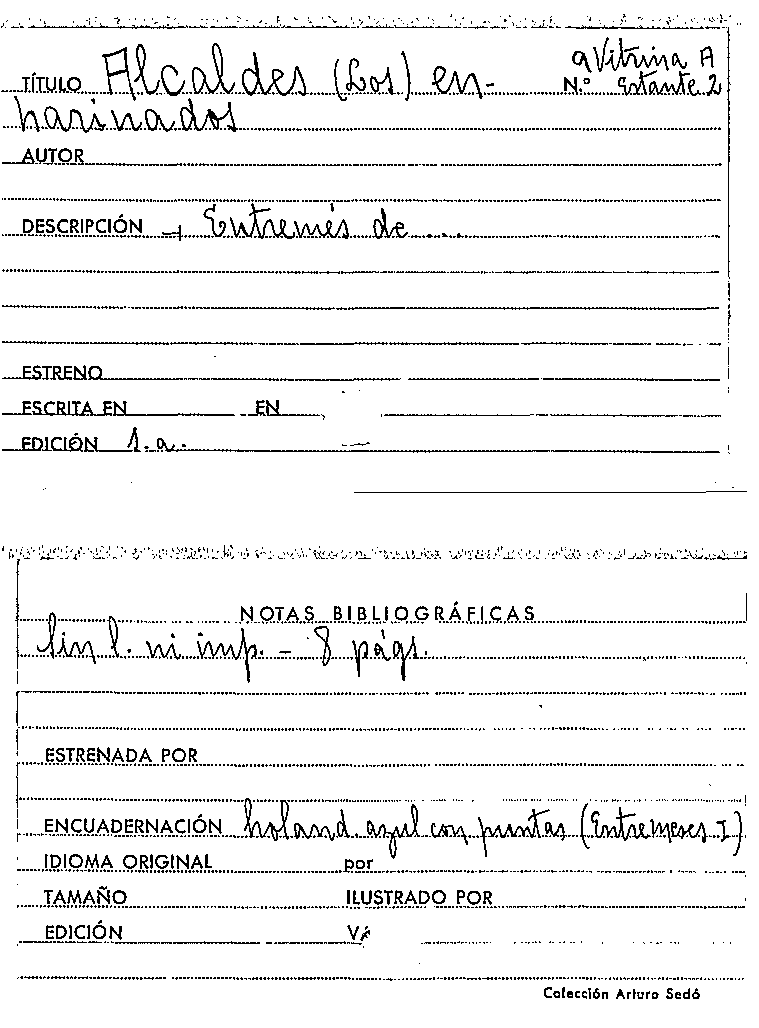 TÍTULO Alcaldes (Los) en- N.º Vitrina A
Estante 2
harinados
AUTOR
DESCRIPCIÓN Entremés de ...
ESTRENO
ESCRITA EN EN
EDICIÓN s.a. —
NOTAS BIBLIOGRÁFICAS
Sin l. ni imp. - 8 págs.
ESTRENADA POR
ENCUADERNACIÓN holand. azul con puntas (Entremeses I)
IDIOMA ORIGINAL por
TAMAÑO ILUSTRADO POR
EDICIÓN
Colección Arturo Sedó